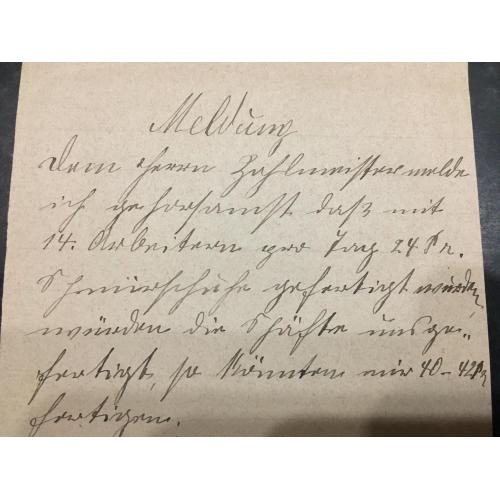 Meldung
Dem Herrn Zahlmeister melde
ich gehorsamst daß mit
14. Arbeitern pro Tag 24 Pr.
Schnürschuhe gefertigt wurden,
würden die Schäfte unsge-
fertigt, so könnten wir 40-42 Pr
fertigen.